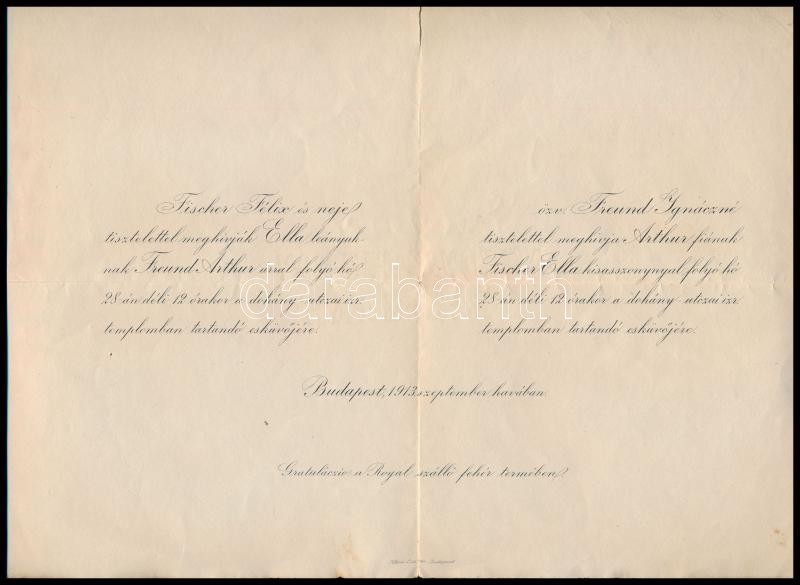 Fischer Félix és neje
tisztelettel meghivják Ella leányuk-
nak Freund Arthur úrral folyó hó
28-án déli 12 órakor a dohány-utczai izr.
templomban tartandó esküvőjére.
özv. Freund Ignáczné
tisztelettel meghivja Arthur fiának
Fischer Ella kisasszonynyal folyó hó
28-án déli 12 órakor a dohány-utczai izr.
templomban tartandó esküvőjére.
darabanth
Budapest, 1913 szeptember havában.
Gratuláczio a Royal szálló fehér termében.
Budapest